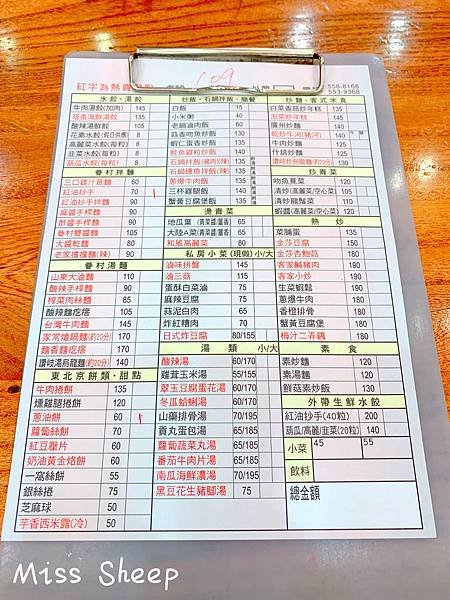 紅字為熱賣
109
558-8168
553-9368
水餃、湯餃
牛肉湯餃(加肉) 145
塔香海鮮湯餃 135
酸辣湯餃 105
花素水餃(假日供應) 8
高麗菜水餃(每粒) 8
韭菜水餃(每粒) 8
葫瓜水餃(每粒) 8
眷村拌麵
三口雞汁意麵 60
紅油抄手 70
紅油抄手拌麵 90
麻醬手桿麵 90
酢醬手桿麵 90
眷村雙醬麵 90
大醬乾麵 80
老家擔擔麵(辣) 90
眷村湯麵
山東大滷麵 110
酸辣手桿麵 90
榨菜肉絲麵 90
酸辣麵疙瘩 105
台灣牛肉麵 140
家常熗鍋麵(約20分) 170
麵香麵疙瘩 170
讚岐湯烏龍麵(約20分) 140
東北京餅類、甜點
牛肉捲餅 135
燻雞腿捲餅 120
蔥油餅 60
蘿蔔絲餅 60
紅豆壓片 60
奶油黃金烙餅 60
一窩絲餅 55
銀絲捲 75
芝麻球 50
芋香西米露(冷) 50
炒飯、石鍋拌飯、簡餐
白飯 15
小米粥 40
老鍋滷肉飯 60
蒜香吻魚炒飯
蝦仁蛋香炒飯
鮭魚雞粒炒飯
石鍋拌飯(豬肉)(辣)
石鍋燻魚拌飯(辣)
蔥爆牛肉飯
三杯雞腿飯
蟹黃豆腐煲飯
燙青菜
地瓜葉 65
大陸A菜 65
和風高麗菜 80
私房小菜(現做)小/大
滷味拼盤 145
滷三菇 115
蛋酥白菜滷 75
麻辣豆腐 75
蒜泥白肉 75
炸紅糟肉 70
日式炸豆腐 80/155
湯類 小/大
酸辣湯 60/165
雞茸玉米湯 55/155
翠玉豆腐蛋花湯 60/165
冬瓜蛤蠣湯 60/165
山藥排骨湯 70/195
貢丸蛋包湯 65/185
蘿蔔蔬菜丸湯 65/185
番茄牛肉片湯 65/185
南瓜海鮮濃湯 70/195
黑豆花生豬腳湯 75
炒麵、客式米食
白菜香菇炒年糕 145
泡菜炒年糕 145
廣州炒麵 140
乾炒牛河(豬河) 140
牛肉炒麵 135
什錦炒麵 135
讚岐炒烏龍麵(約20分) 130
炒青菜
吻魚莧菜 160
清炒(高麗菜/空心菜) 105
清炒龍鬚菜 110
蝦醬(高麗菜/空心菜) 110
熱炒
菜脯蛋 135
金莎豆腐 150
金莎杏鮑菇 180
客家鹹豬肉 190
客家小炒 190
生菜蝦鬆 190
蔥爆牛肉 180
香橙排骨 180
蟹黃豆腐煲 180
梅汁二弄雞 190
素食
素炒麵 120
素湯麵 120
鮮菇素炒飯 130
外帶生鮮水餃
紅油抄手(40粒) 200
葫瓜/高麗/韭菜(20粒) 140
小菜 45 55
飲料
總金額
Miss Sheep